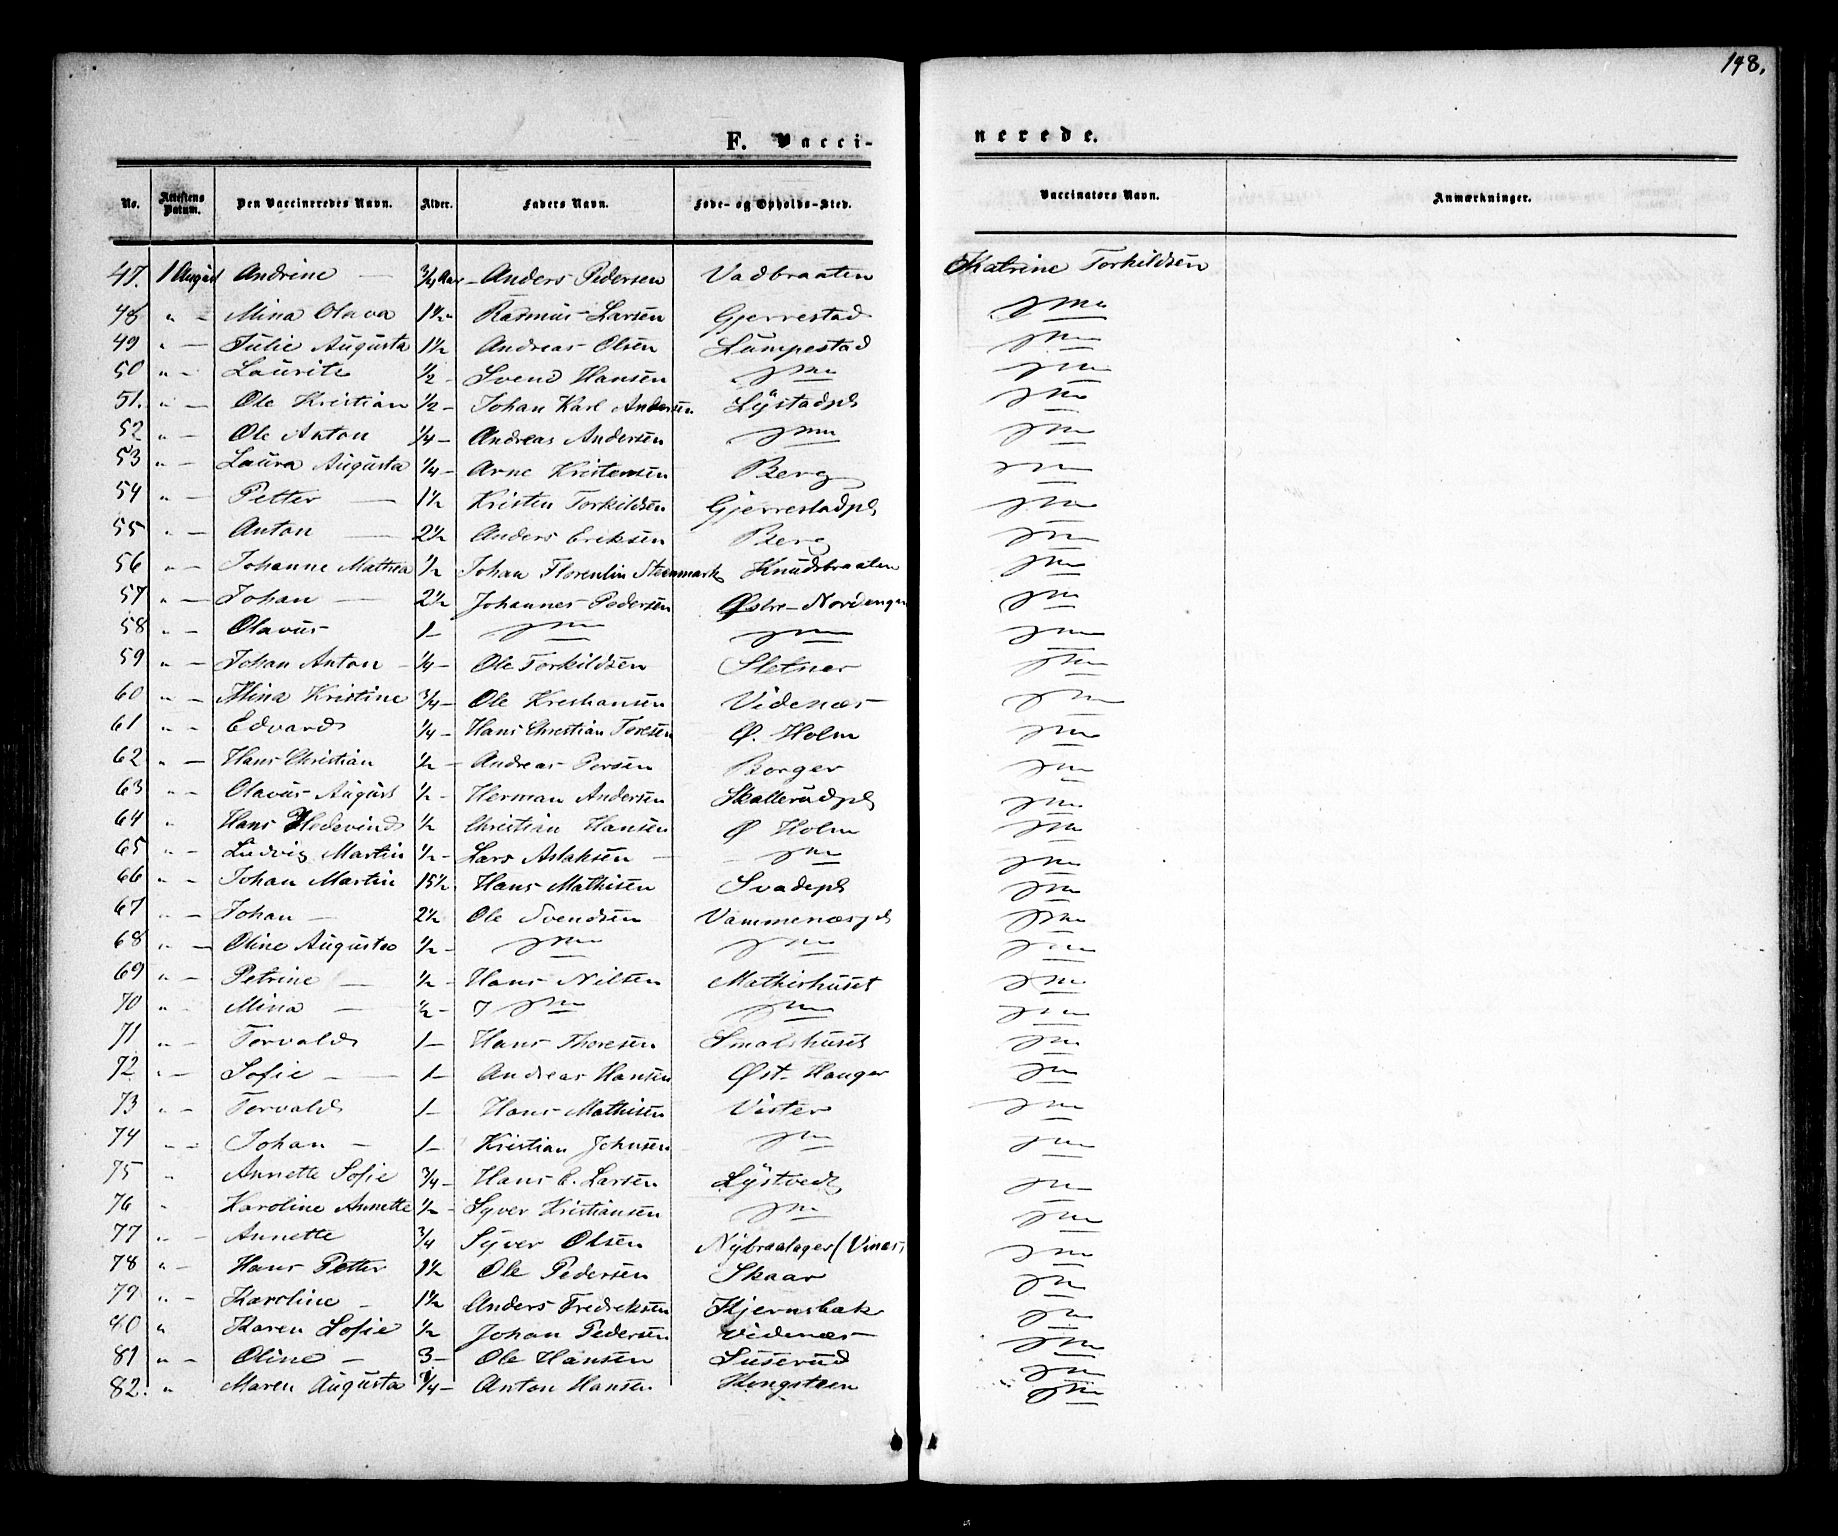 148.
F. Vaccinerede.
No. Attestens Datum. Den Vaccineredes Navn. Alder. Faders Navn. Føde- og Opholds-Sted. Vaccinators Navn. Anmærkninger.
47. 1 August Andrine — 3/4 Aar Anders Pedersen Vadbraaten Katrine Torkildsen
48 " - Mina Olava 1 1/2 " Rasmus Larsen Gjerrestad
49 " - Julie Augusta 1 1/2 Andreas Olsen Lumpestad
50 " - Laurits 1/2 - Svend Hansen
51. " - Ole Kristian 1/2 - Johan Karl Andersen Lÿstadpl
52 " - Ole Anton 1/4 - Andreas Andersen
53 " - Laura Augusta 1/4 - Arne Kristensen Berg
54 " - Petter — 1 1/2 Kristen Torkildsen Gjerrestadpl
55 " - Anton — 2 1/2 Anders Eriksen Berg
56 " - Johanne Mathea 1/2 Johan Florentin Steenmark Knudsbraaten
57 " - Johan — 2 1/2 Johannes Pedersen Østre Nordengen
58 " - Olavus 1 -
59 " - Johan Anton - 1/4 - Ole Torkildsen Sletner
60 " - Mina Kristine 3/4 - Ole Kreshansen Videnæs
61 " - Edvard 1/4 - Hans Christian Toresen Ø. Holm
62 " - Hans Christian 1/2 - Andreas Persen Borger
63 " - Olavus August 1/2 - Herman Andersen Skallerudpl
64 " Hans Hedevind 1/2 Christian Hansen Ø Holm
65 " - Ludvig Martin 1/2 - Lars Aslaksen -
66 " - Johan Martin 15 1/2 Hans Mathisen Svadepl
67 " - Johan - 2 1/2 Ole Svendsen Vammenæspl
68 " - Oline Augusta 1/2 -
69 " - Petrine - 1/2 - Hans Nilsen Mathishuset
70 " - Mina - 1/2 -
71 " - Torvald 1 - Hans Thoresen Smalshuset
72 " - Sofie - 1 - Andreas Hansen Øst. Hauger
73 " - Torvald 1 - Hans Mathisen Vister
74 " - Johan - 1 - Kristian Johnsen
75 " Annette Sofie 3/4 - Hans E. Larsen Lÿstvedt
76 " Karoline Annette 1/2 - Syver Kristiansen
77 " - Annette 3/4 Sÿver Olsen
78 " - Hans Petter 1 1/2 Ole Pedersen Skaar
79 " - Karoline - 1 1/2 Anders Fredriksen Kjernsbak
40 " Karen Sofie 1/2 Johan Pedersen Videnæs
81 " - Oline - 3 - Ole Hansen Suserud
82. " Maren Augusta 3/4 - Anton Hansen Kongsteen